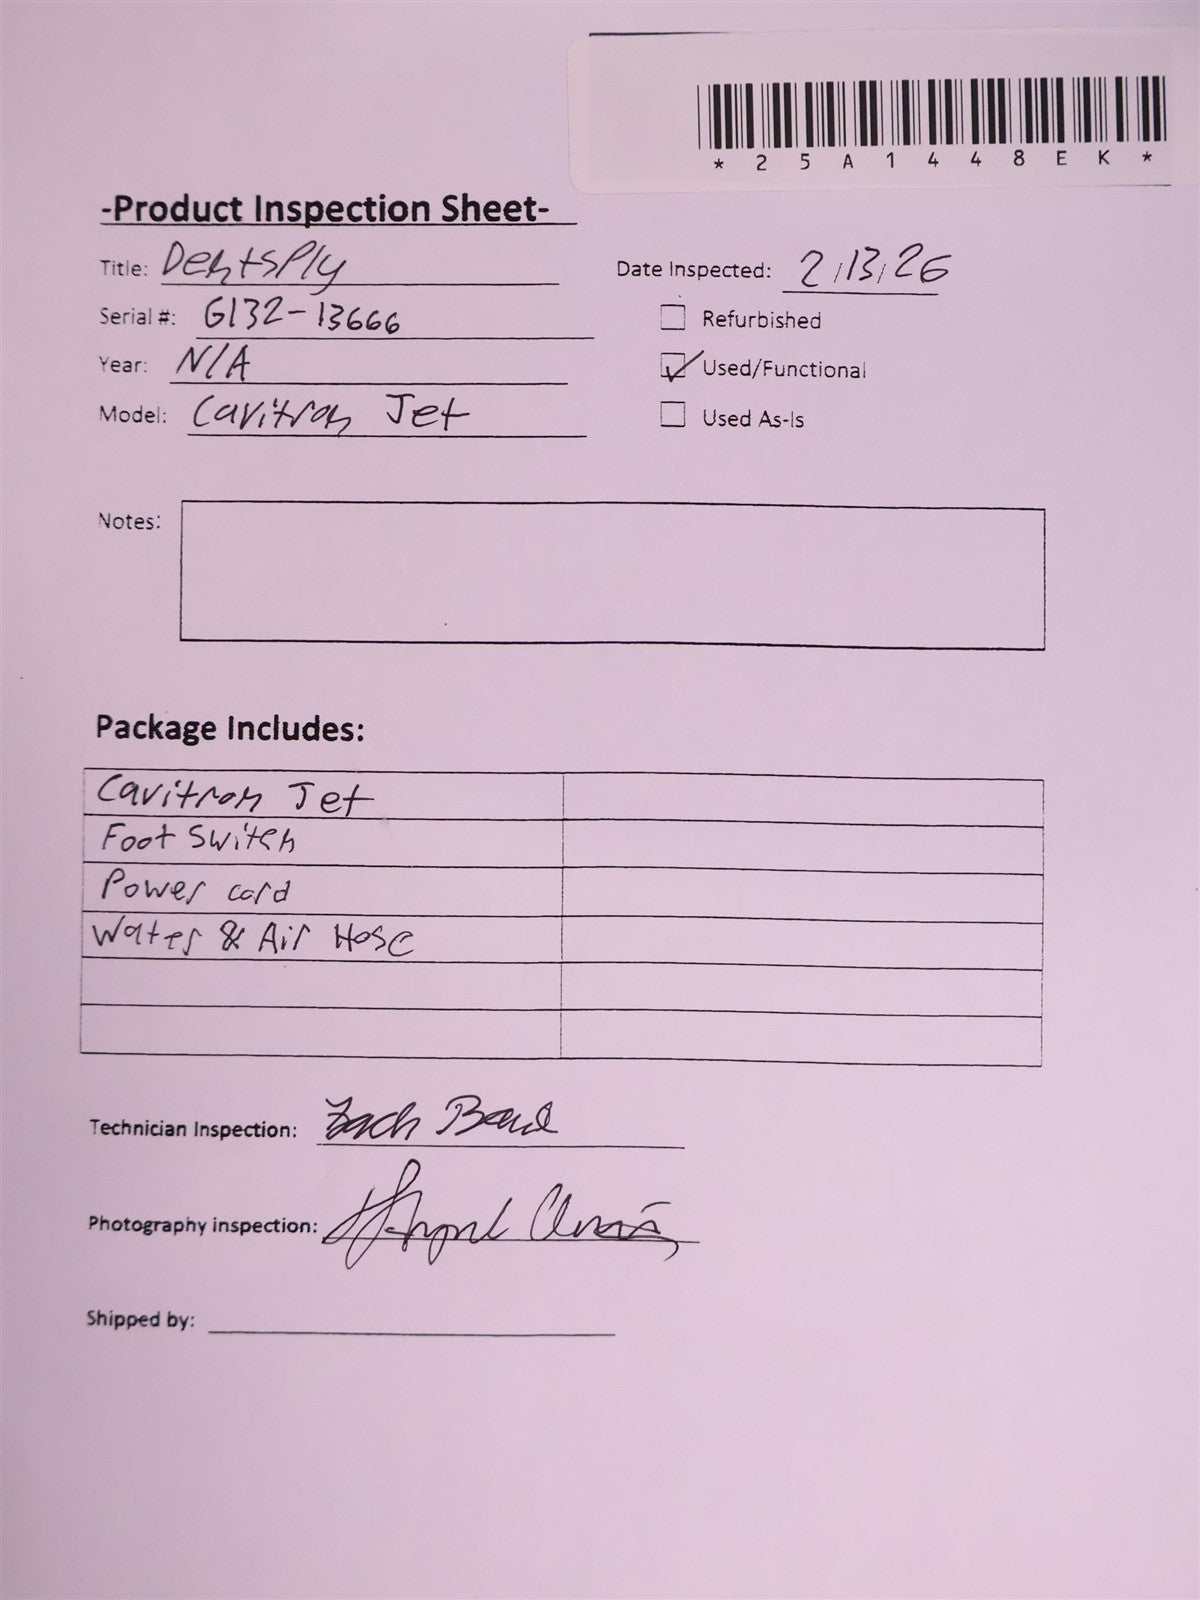 * 2 5 A 1 4 4 8 E K *
-Product Inspection Sheet-
Title: DentsPly
Date Inspected: 2/13/26
Serial #: G132-13666
Refurbished
Year: N/A
Used/Functional
Model: Cavitron Jet
Used As-Is
Notes:
Package Includes:
Cavitron Jet
Foot Switch
Power cord
Water & Air Hose
Technician Inspection: Zach
Photography inspection:
Shipped by: